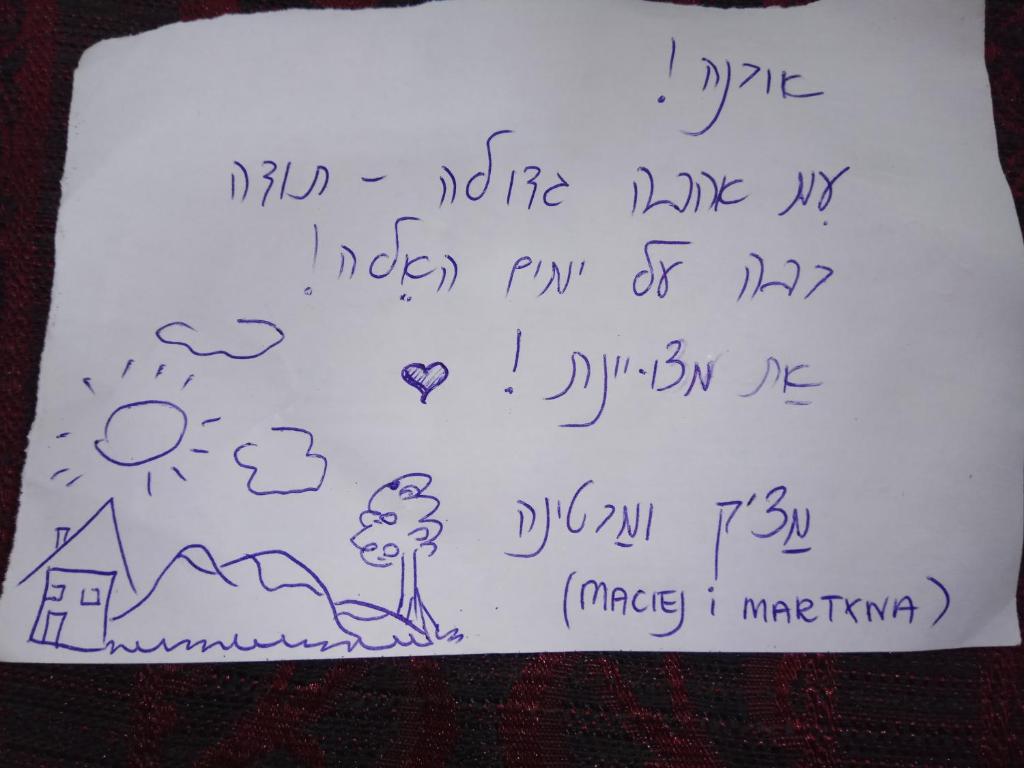 אורנה!
עִם אהבה גדולה - תודה
רבה על ימים האֵלה!
אַת מצויינת!
מַצ'ק ומַרטינה
(MACIEJ i MARTYNA)